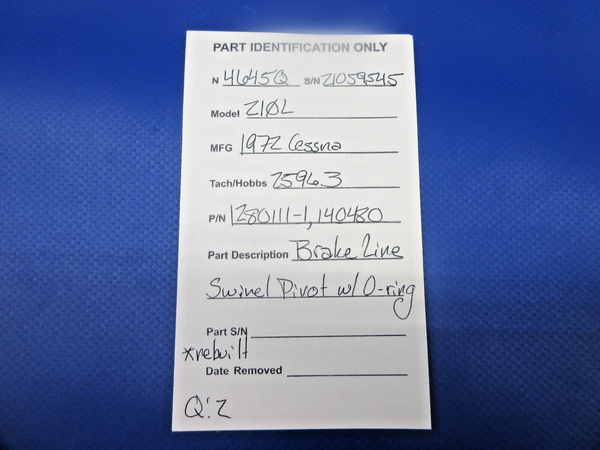 PART IDENTIFICATION ONLY
N 4645Q S/N 21059545
Model 210L
MFG 1972 Cessna
Tach/Hobbs 2596.3
P/N 1280111-1, 140480
Part Description Brake Line
Swivel Pivot w/ O-ring
Part S/N
*rebuilt
Date Removed
Q:2